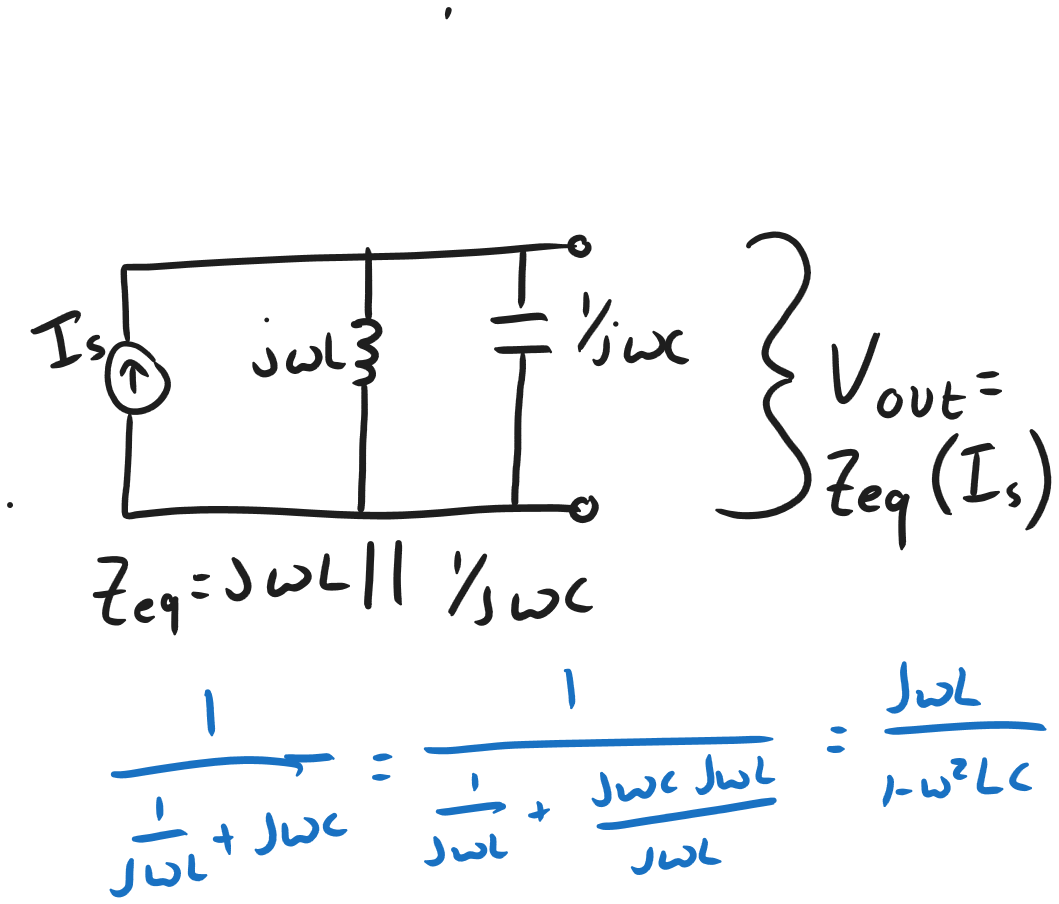 I_s
jωL
1/jωC
V_out =
Z_eq (I_s)
Z_eq = jωL || 1/jωC
1/(1/jωL + jωC) = 1/(1/jωL + jωC jωL/jωL) = jωL/(1-ω²LC)